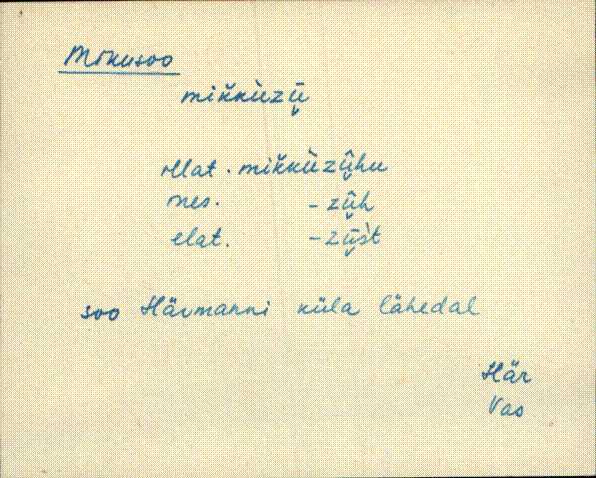 Mikusoo
mik̆kùzū̬
illat. mik̆kùzû̬hu
ines. -zû̬h
elat. -zū̬śt
soo Härmanni küla lähedal
Här
Vas